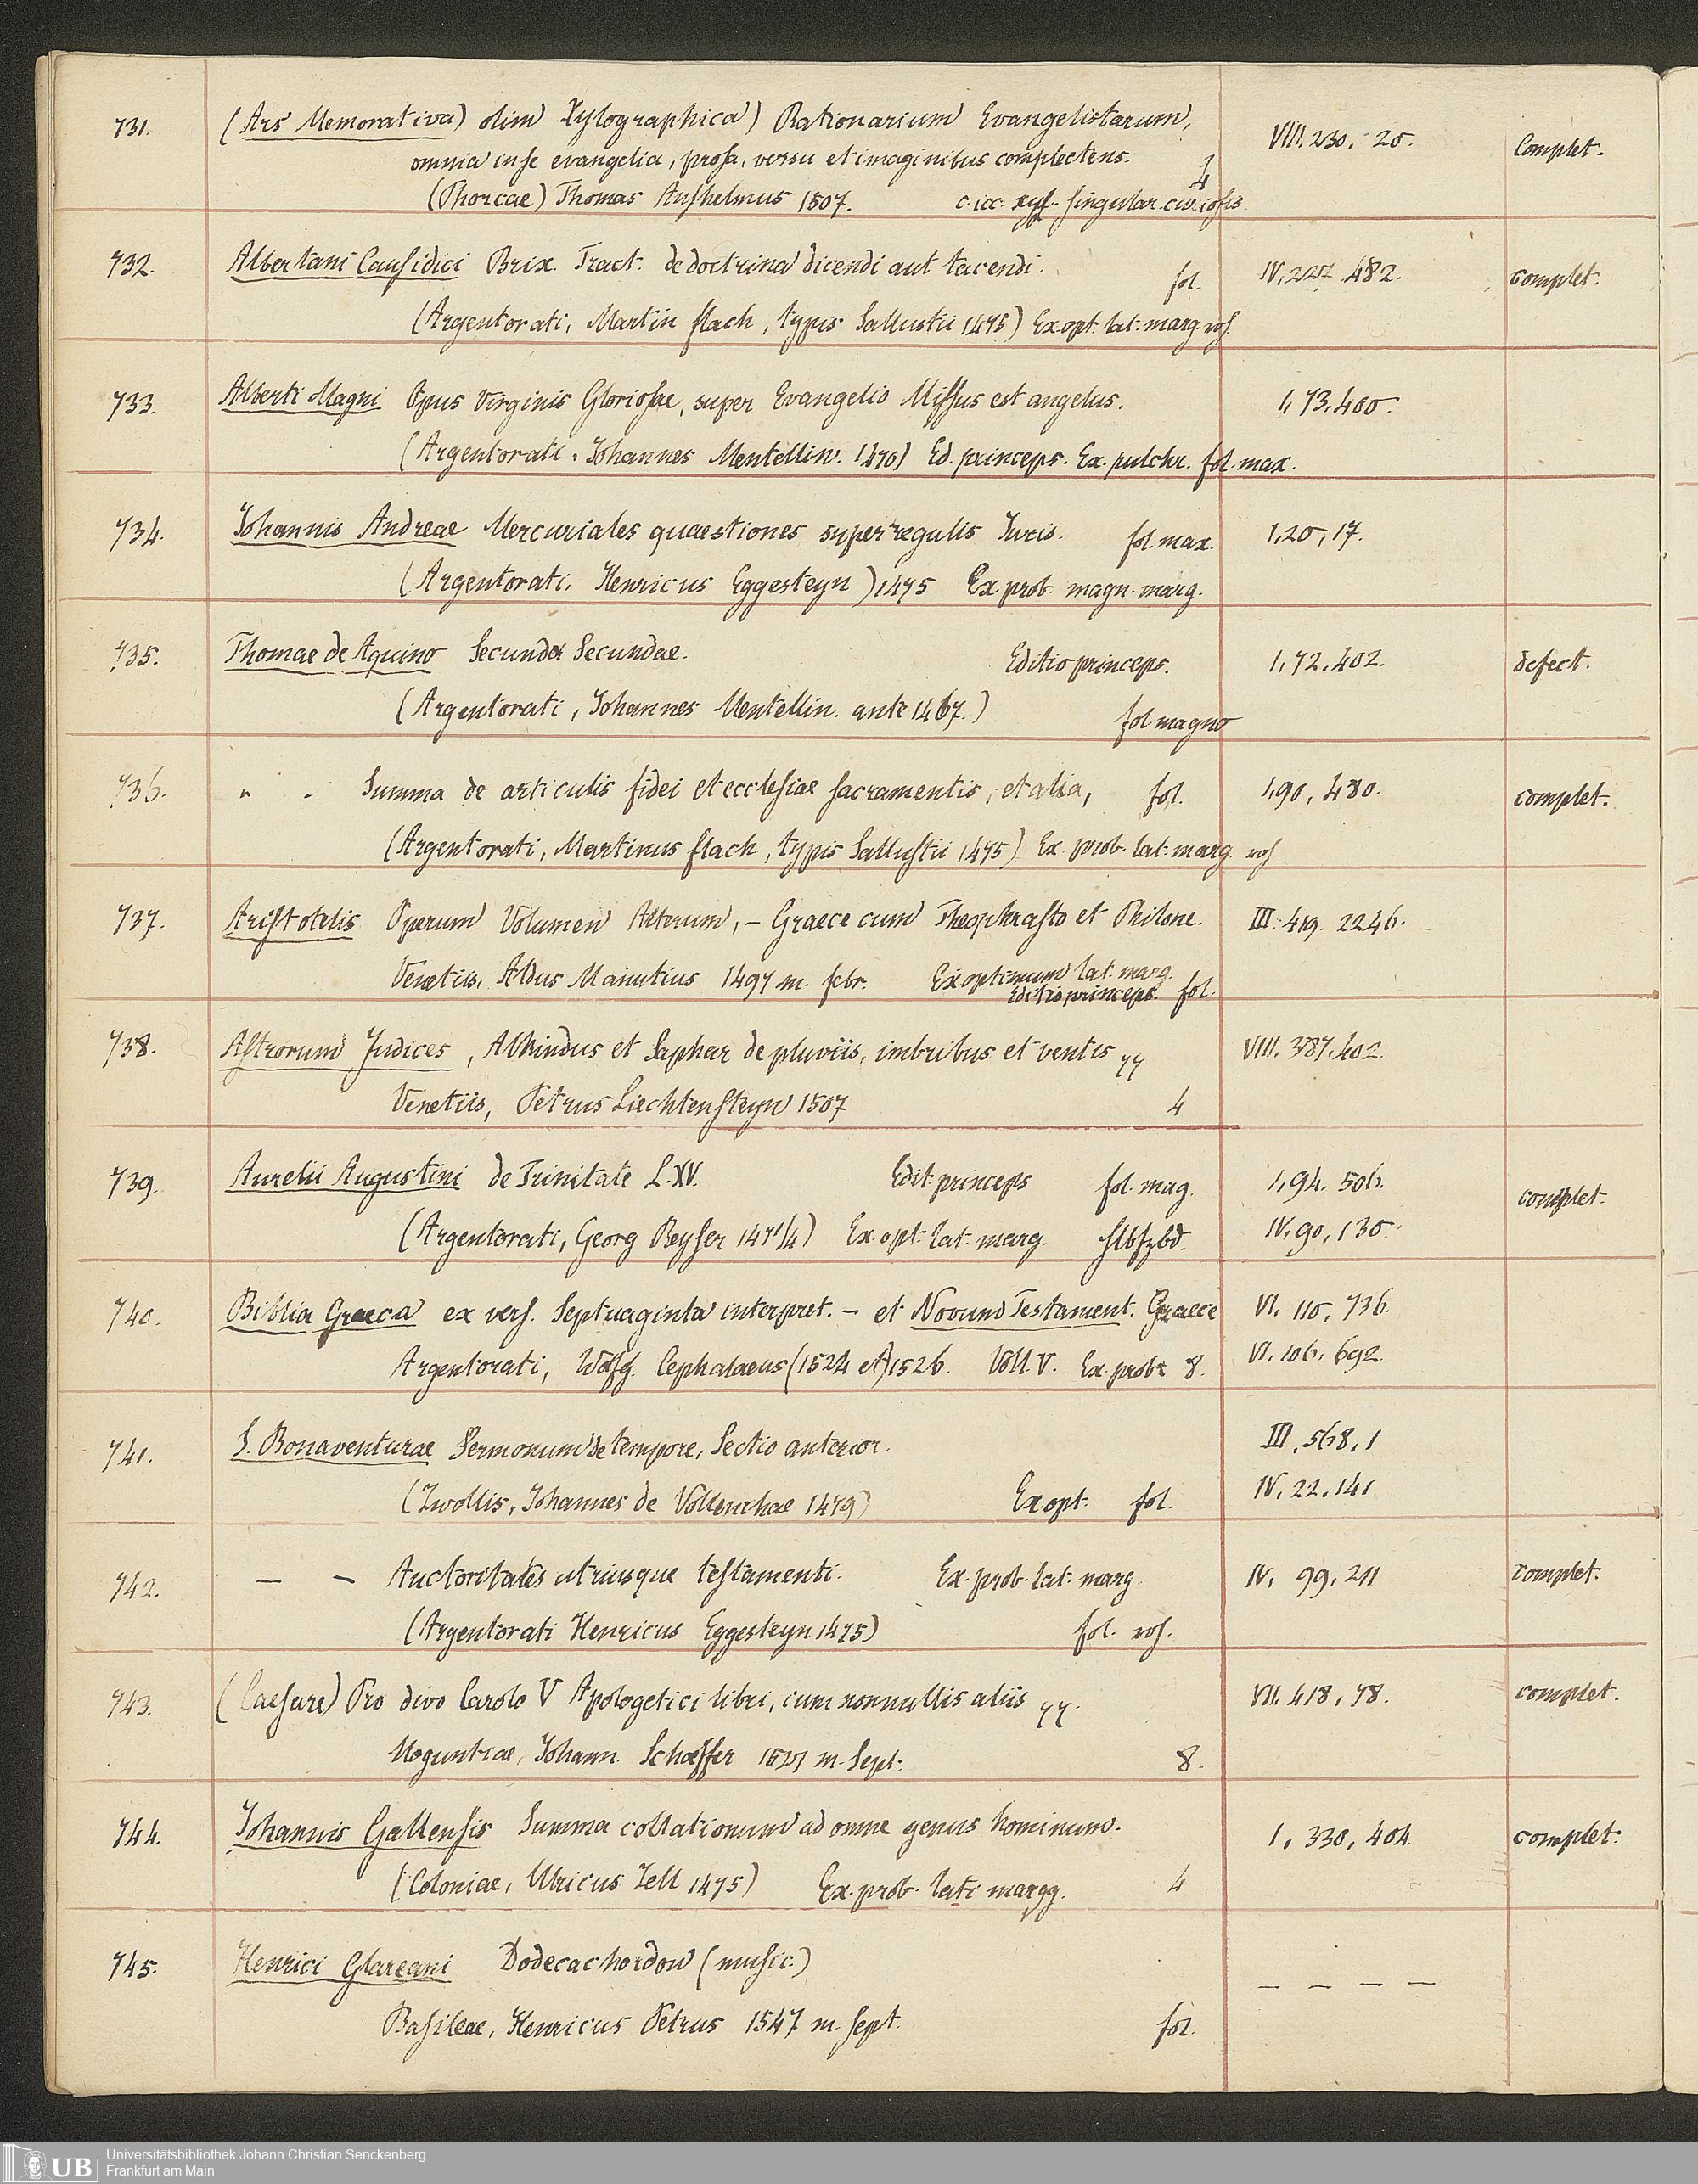 731. (Ars Memorativa) olim Xylographica) Rationarium Evangelistarum, VIII. 230, 20. Complet.
omnia in se evangelia, prosa, versu et imaginibus complectens. 4
(Phorcae) Thomas Anshelmus 1507. c. icc. xyl. singular.
732. Albertani Causidici Brix. Tract. de doctrina dicendi aut tacendi. fol. IV, 227 482. complet.
(Argentorati, Martin flach, typis Sallustii 1475) Ex. opt. lat. marg.
733. Alberti Magni Opus Virginis Gloriosae, super Evangelio Missus est angelus. I, 73. 400.
(Argentorati. Johannes Mentellin. 1470) Ed. princeps. Ex. pulchr. fol. max.
734. Johannis Andreae Mercuriales quaestiones super regulis Juris. fol. max. I, 20, 17.
(Argentorati. Henricus Eggesteyn) 1475 Ex. prob. magn. marg.
735. Thomae de Aquino Secunda Secundae. Editio princeps. I, 72. 402. defect.
(Argentorati, Johannes Mentellin. ante 1467.) fol magno
736. " " Summa de articulis fidei et ecclesiae sacramentis, et alia, fol. I, 90, 480. complet.
(Argentorati, Martinus flach, typis Sallustii 1475) Ex. prob. lat. marg.
737. Aristotelis Operum Volumen Alterum, – Graece cum Theophrasto et Philone. III. 419. 2246.
Venetiis, Aldus Manutius 1497 m. febr. Ex optimum lat. marg.
Editio princeps. fol.
738. Astrorum Judices, Alkindus et Saphar de pluviis, imbribus et ventis VIII. 387. 402.
Venetiis, Petrus Liechtensteyn 1507 4
739. Aurelii Augustini de Trinitate L. XV. Edit princeps fol. mag. I, 94. 506. complet.
(Argentorati, Georg Reyser 1471/4) Ex. opt. lat. marg. hlbfzbd. IV. 90, 130.
740. Biblia Graeca ex vers. Septuaginta interpret. – et Novum Testament. Graece VI. 110, 736.
Argentorati, Wolfg. Cephalaeus (1524 et) 1526. Voll. V. Ex. prob. 8. VI. 106. 692.
741. S. Bonaventurae Sermonum de tempore, Sectio anterior. III, 568, 1
(Zwollis, Johannes de Vollenhae 1479) Ex opt. fol. IV. 22. 141
742. – – Auctoritates utriusque testamenti. Ex. prob. lat. marg. IV, 99, 211 complet.
(Argentorati Henricus Eggesteyn 1475) fol.
743. (Caesare) Pro divo Carolo V Apologetici libri, cum nonnullis aliis VII. 418, 78. complet.
Moguntiae, Johann. Schoeffer 1527 m. Sept. 8.
744. Johannis Gallensis Summa collationum ad omne genus hominum. I, 330, 404. complet.
(Coloniae, Ulricus Zell 1475) Ex. prob. lati margg. 4
745. Henrici Glareani Dodecachordon (music.) – – – –
Basileae, Henricus Petrus 1547 m. sept. fol.
UB Universitätsbibliothek Johann Christian Senckenberg
Frankfurt am Main